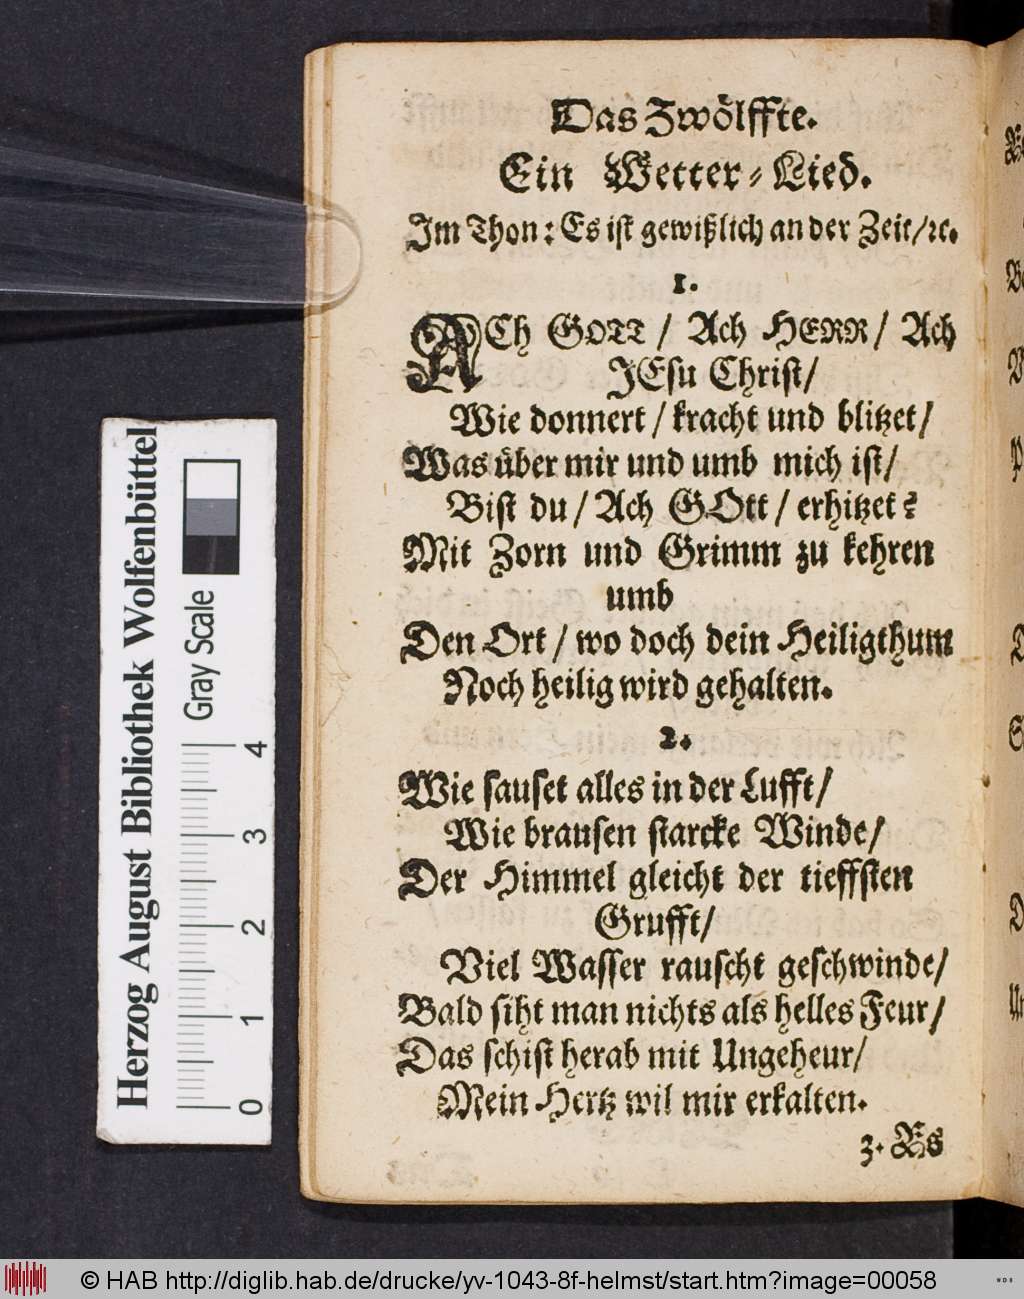 Das Zwölffte.
Ein Wetter-Lied.
Im Thon: Es ist gewißlich an der Zeit/ ꝛc.
1.
ACh GOTT / Ach HERR / Ach
JEsu Christ/
Wie donnert / kracht und blitzet/
Was über mir und umb mich ist/
Bist du / Ach GOtt / erhitzet?
Mit Zorn und Grimm zu kehren
umb
Den Ort / wo doch dein Heiligthum
Noch heilig wird gehalten.
2.
Wie sauset alles in der Lufft/
Wie brausen starcke Winde/
Der Himmel gleicht der tieffsten
Grufft/
Viel Wasser rauscht geschwinde/
Bald siht man nichts als helles Feur/
Das schist herab mit Ungeheur/
Mein Hertz wil mir erkalten.
3. Es
Herzog August Bibliothek Wolfenbüttel
Gray Scale
0 1 2 3 4
© HAB http://diglib.hab.de/drucke/yv-1043-8f-helmst/start.htm?image=00058